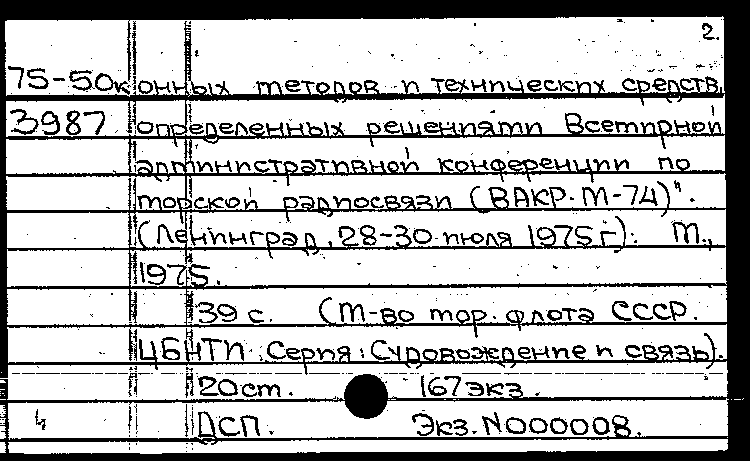 2.
75-50к онных методов и технических средств,
3987 определенных решениями Всемирной
административной конференции по
морской радиосвязи (ВАКР-М-74)".
(Ленинград, 28-30 июля 1975 г): М.,
1975.
39 с. (М-во мор. флота СССР.
ЦБНТИ. Серия: Судовождение и связь).
20 см. 167 экз.
4 ДСП. Экз. N000008.